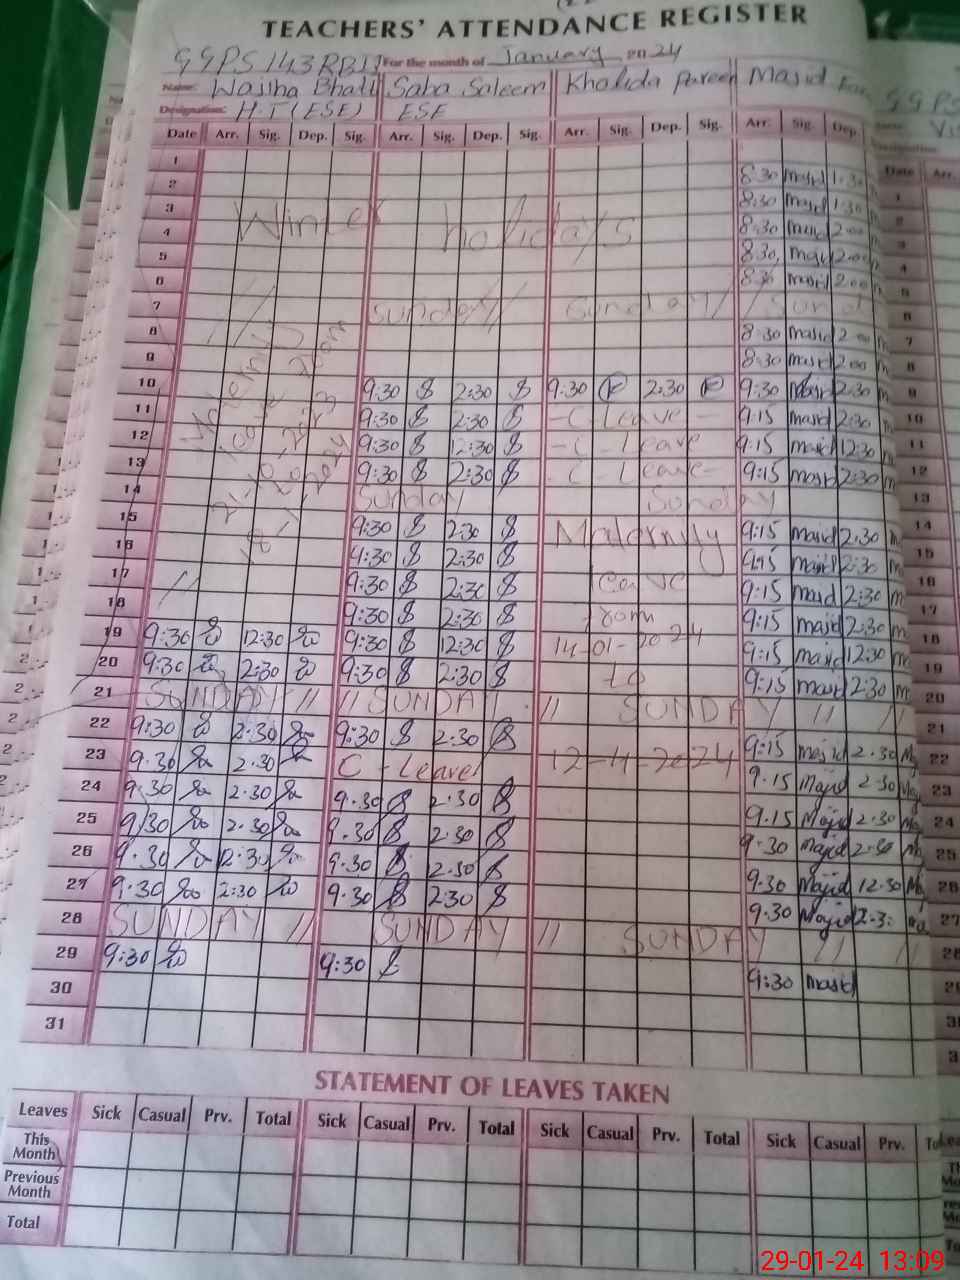 TEACHERS' ATTENDANCE REGISTER
GGPS 143RB For the month of January 2024
Name: Wajiha Bhatti Saba Saleem Khalida Parveen Masid
Designation: H.T (ESE) ESE
Date Arr. Sig. Dep. Sig. Arr. Sig. Dep. Sig. Arr. Sig. Dep. Sig. Arr. Sig. Dep.
1
2 8:30 Masid 1:30
3 8:30 Masid 1:30
4 Winter holidays 8:30 Masid 2:00
5 8:30 Masid 2:00
6 8:30 Masid 2:00
7 // Sunday // Sunday // Sund
8 8:30 masid 2:00
9 8:30 masid 2:00
Maternity leave from 21-10-2023 to 18-1-2024
10 9:30 2:30 9:30 2:30 9:30 Masid 2:30
11 9:30 2:30 - C-Leave - 9:15 masid 2:30
12 9:30 12:30 - C - Leave 9:15 masid 12:30
13 9:30 2:30 - C - Leave - 9:15 masid 2:30
14 Sunday Sunday
15 9:30 2:30 Maternity 9:15 masid 2:30
16 9:30 2:30 leave 9:15 masid 2:30
17 // 9:30 2:30 from 9:15 masid 2:30
18 9:30 2:30 14-01-2024 9:15 masid 2:30
19 9:30 12:30 9:30 12:30 to 9:15 masid 12:30
20 9:30 2:30 9:30 2:30 9:15 masid 2:30
21 SUNDAY // // SUNDAY // SUNDAY // //
22 9:30 2:30 9:30 2:30 12-4-2024 9:15 masid 2:30
23 9:30 2:30 C - Leave 9:15 Majid 2:30
24 9:30 2:30 9:30 2:30 9:15 Majid 2:30
25 9:30 2:30 9:30 2:30 9:30 Majid 2:30
26 9:30 12:30 9:30 2:30 9:30 Majid 12:30
27 9:30 2:30 9:30 2:30 9:30 Majid 2:30
28 SUNDAY // SUNDAY // SUNDAY // //
29 9:30 9:30 9:30 masid
30
31
STATEMENT OF LEAVES TAKEN
Leaves Sick Casual Prv. Total Sick Casual Prv. Total Sick Casual Prv. Total Sick Casual Prv.
This Month
Previous Month
Total
29-01-24 13:09